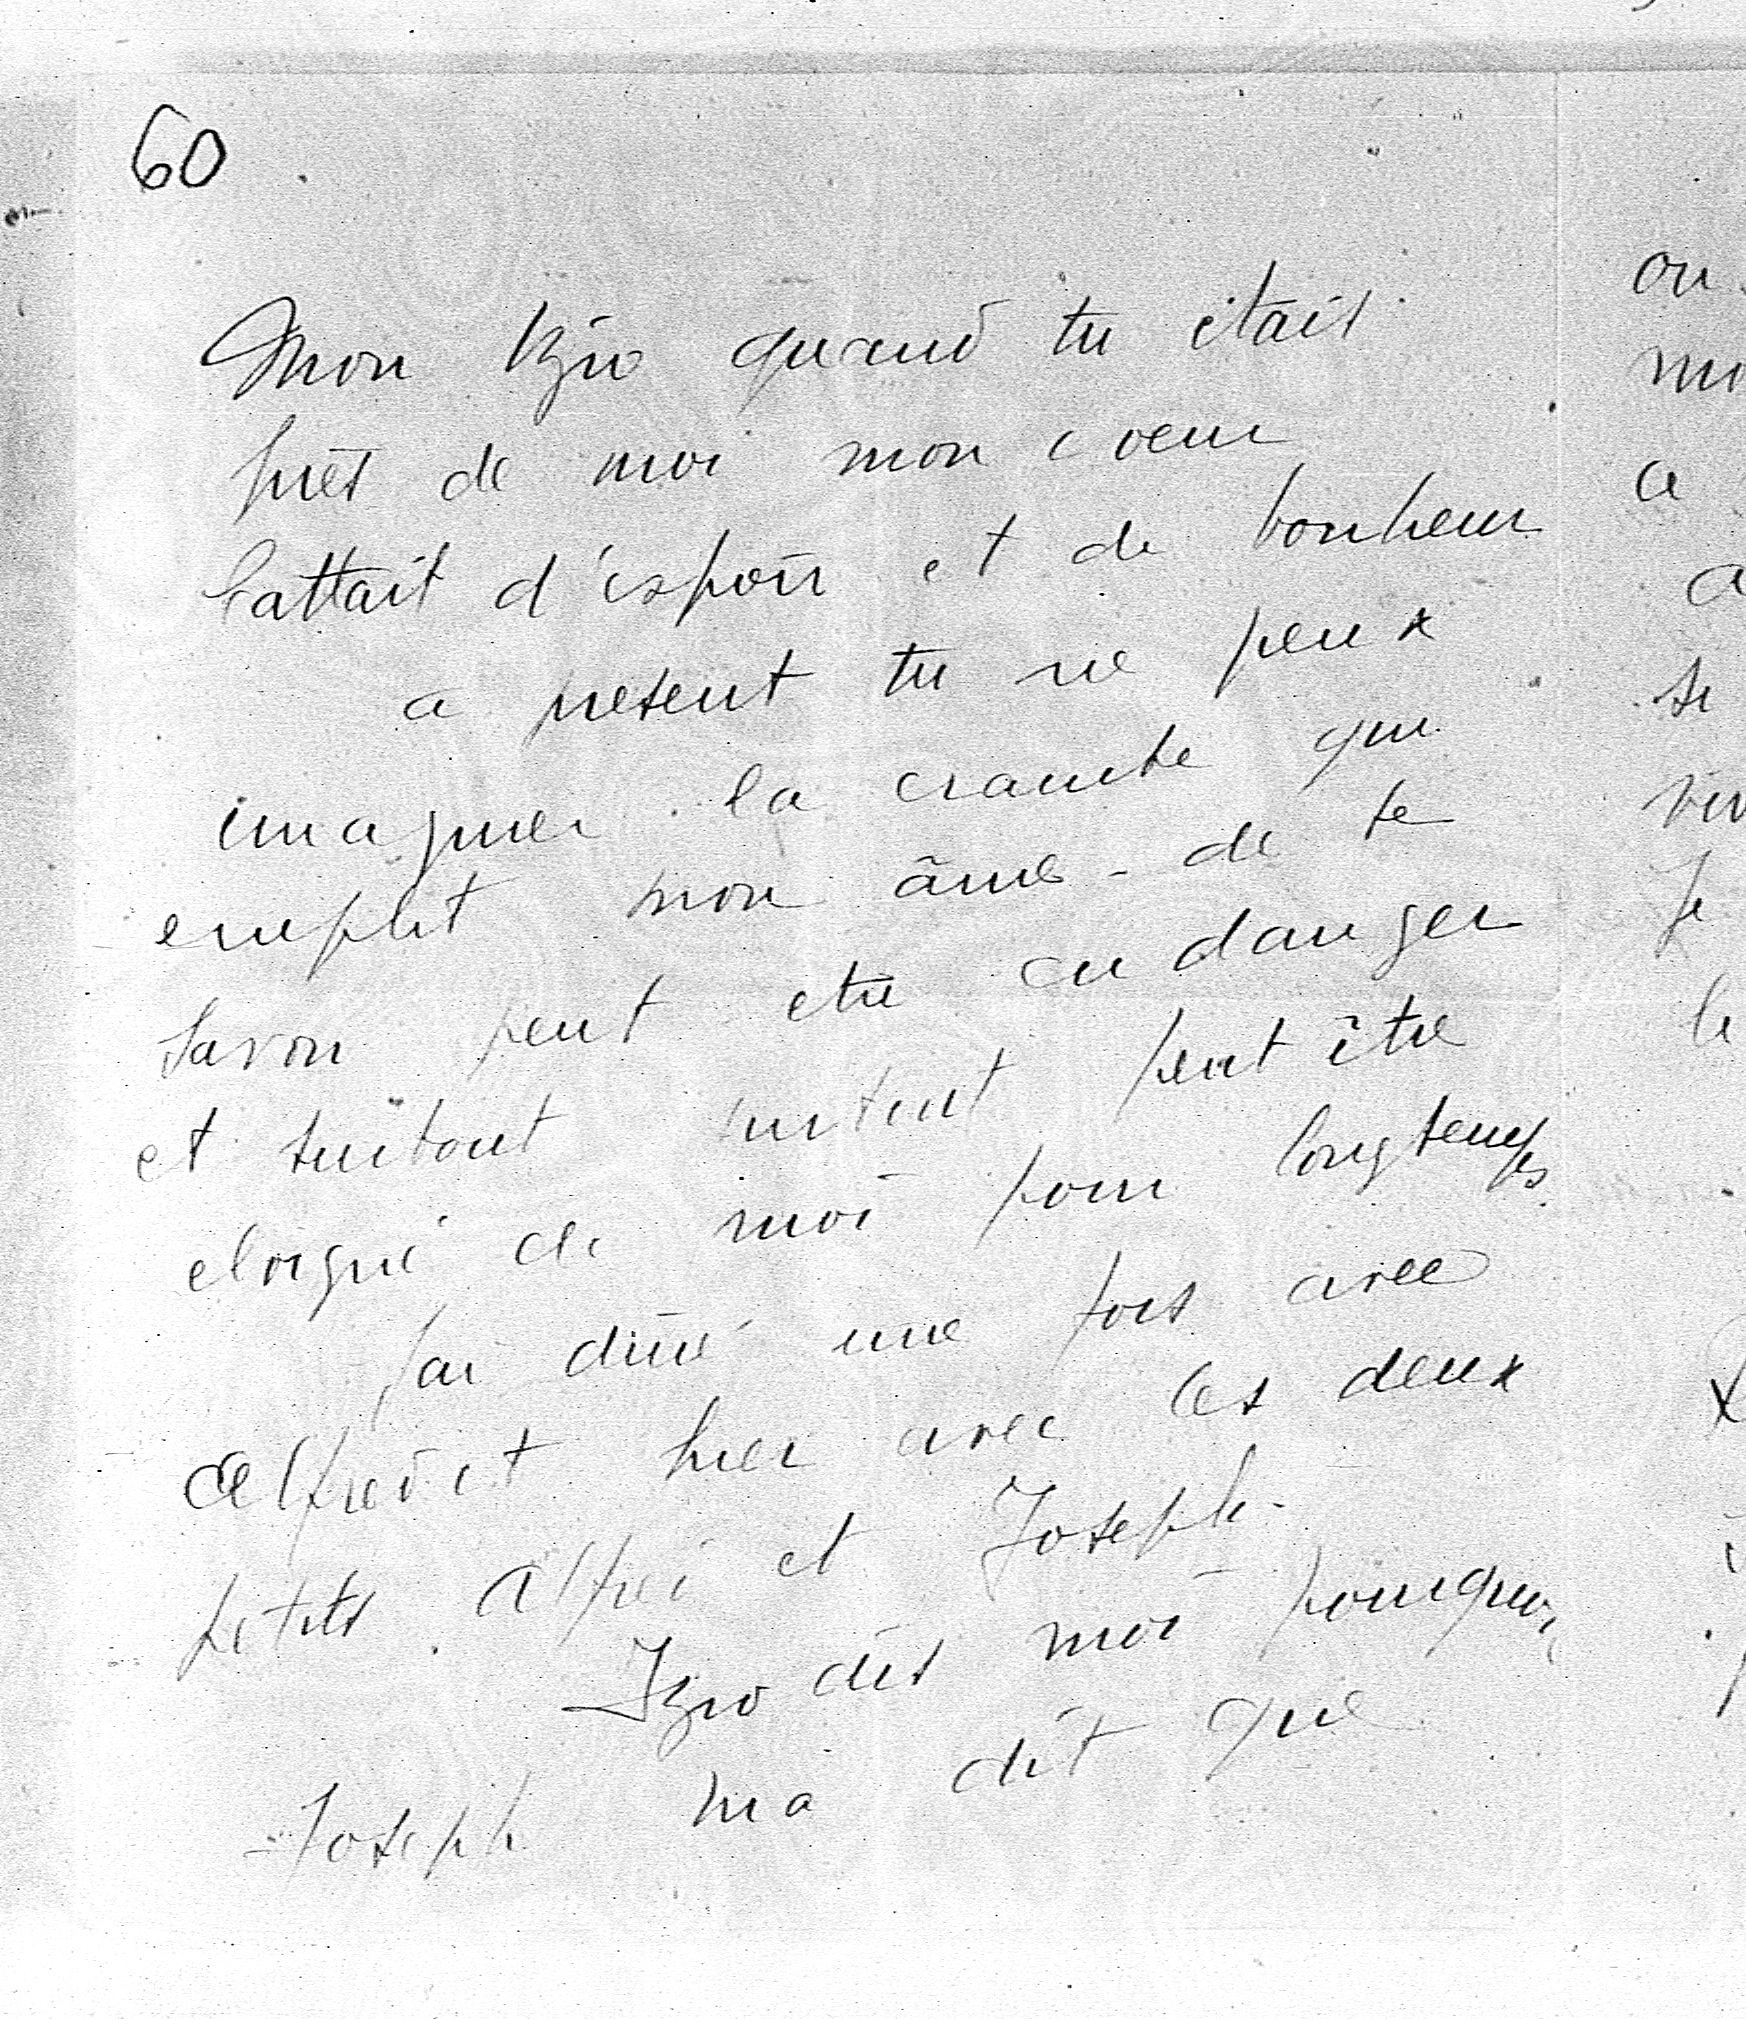 60
Mon Izio quand tu étais
près de moi mon coeur
battait d'espoir et de bonheur
a present tu ne peux
imaginer la crainte qui
emplit mon âme - de te
savoir peut etre en danger
et surtout surtout peut être
eloigné de moi pour longtemps
J'ai dîné une fois avec
Alfred et hier avec les deux
petits Alfred et Joseph -
Izio dis moi pourquoi
Joseph m'a dit que